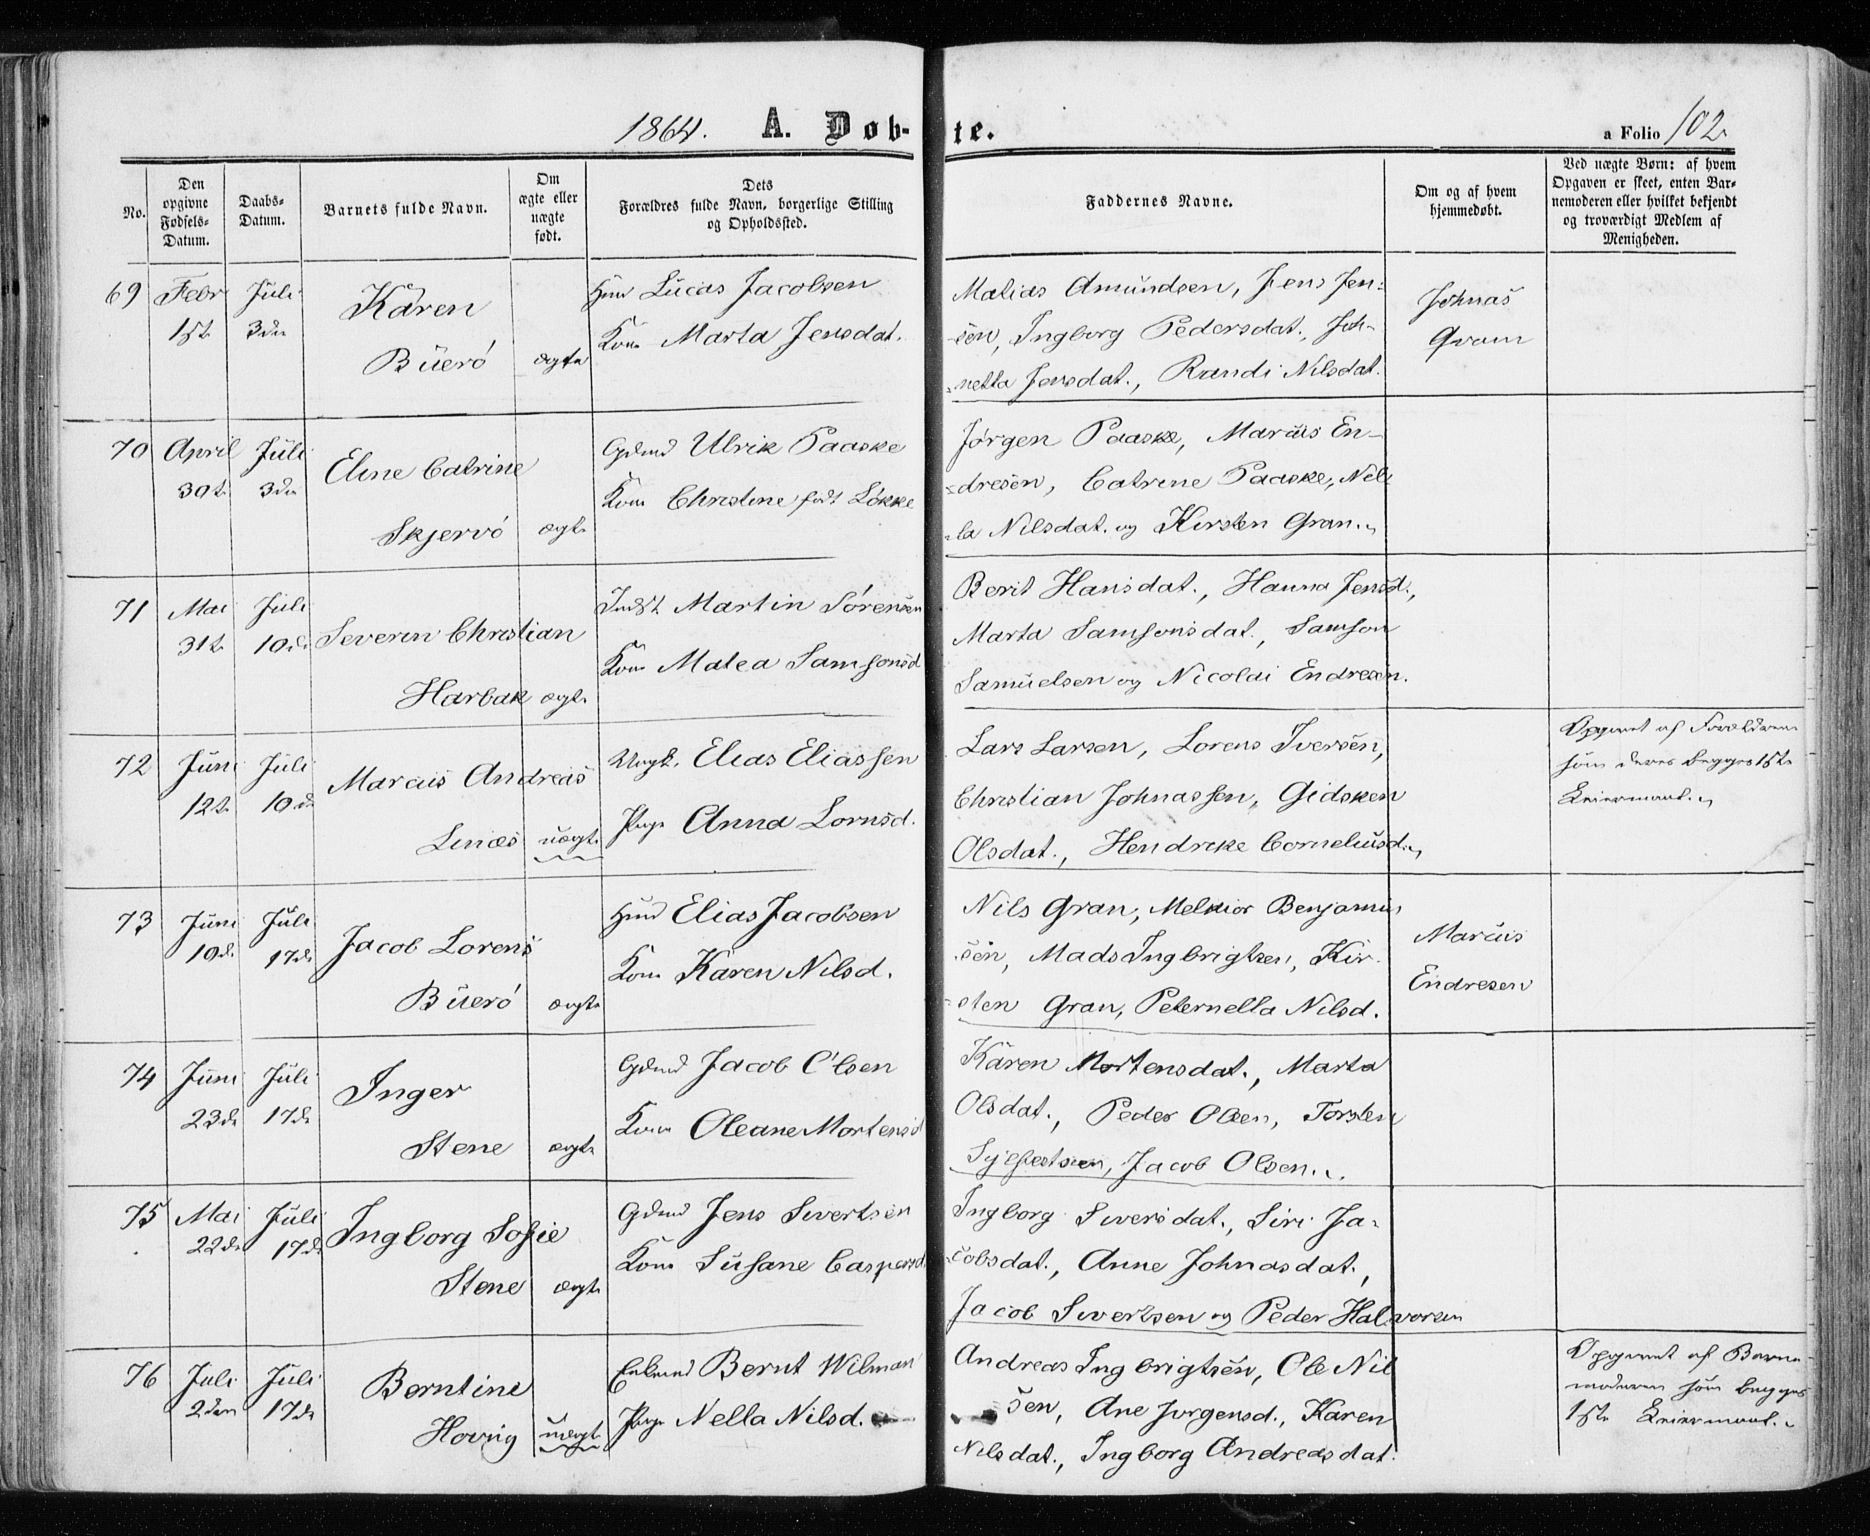 1864. A. Døb- te. a Folio 102.
No.
Den opgivne Fødsels-Datum.
Daabs-Datum.
Barnets fulde Navn.
Om ægte eller uægte født.
Dets Forældres fulde Navn, borgerlige Stilling og Opholdssted.
Faddernes Navne.
Om og af hvem hjemmedøbt.
Ved uægte Børn: af hvem Opgaven er skeet, enten Barnemoderen eller hvilket bekjendt og troværdigt Medlem af Menigheden.
69 Febr 1ste Juli 3die Karen
Buerø ægte
Hmd Lucas Jacobsen
Kone Marta Jensdat.
Matias Amundsen, Jens Jen-
sen, Ingborg Pedersdat., Joh-
netta Jensdat., Randi Nilsdat.
Johnas
Qvam
70 April 30te Juli 3die Eline Catrine
Skjervø ægte
Gdmd Ulrik Paaske
Kone Christine født Løkke
Jørgen Paaske, Marius En-
dresen, Catrine Paaske, Nel-
la Nilsdat. og Kirsten Gran.
71 Mai 31te Juli 10de Severin Christian
Harbak ægte
Indst Martin Sørensen
Kone Matea Samsonsd
Berit Hansdat., Hanna Jensd.,
Marta Samsonsdat., Samson
Samuelsen og Nicolai Endresen.
72 Juni 12te Juli 10de Marcus Andreas
Linæs uægte
Ungk. Elias Eliassen
Pige Anna Lornsd.
Lars Larsen, Lorens Iversen,
Christian Johnassen, Gidsken
Olsdat., Hendrike Corneliusd.
Opgivet af Forældrene
som deres begges 1ste
Leiermaal.
73 Juni 10de Juli 17de Jacob Lorens
Buerø ægte
Hmd Elias Jacobsen
Kone Karen Nilsd.
Nils Gran, Melkior Benjamin-
sen, Mads Ingbrigtsen, Kir-
sten Gran, Peternella Nilsd.
Marius
Endresen
74 Juni 23de Juli 17de Inger
Stene ægte
Gdmd Jacob Olsen
Kone Oleane Mortensd
Karen Mortensdat., Marta
Olsdat., Peder Olsen, Torsten
Sylfestsen, Jacob Olsen.
75 Mai 22de Juli 17de Ingborg Sofie
Stene ægte
Gdmd Jens Sivertsen
Kone Susane Caspersd.
Ingborg Siversdat., Siri Ja-
cobsdat., Anne Johnasdat.,
Jacob Sivertsen og Peder Halvorsen
76 Juli 2den Juli 17de Berntine
Hovig uægte
Enkemd Bernt Wilman
Pige Nella Nilsd.
Andreas Ingbrigtsen, Ole Nil
sen, Ane Jørgensd., Karen
Nilsdat., Ingborg Andreasdat.
Opgivet af Barne-
moderen som begges
1ste Leiermaal.